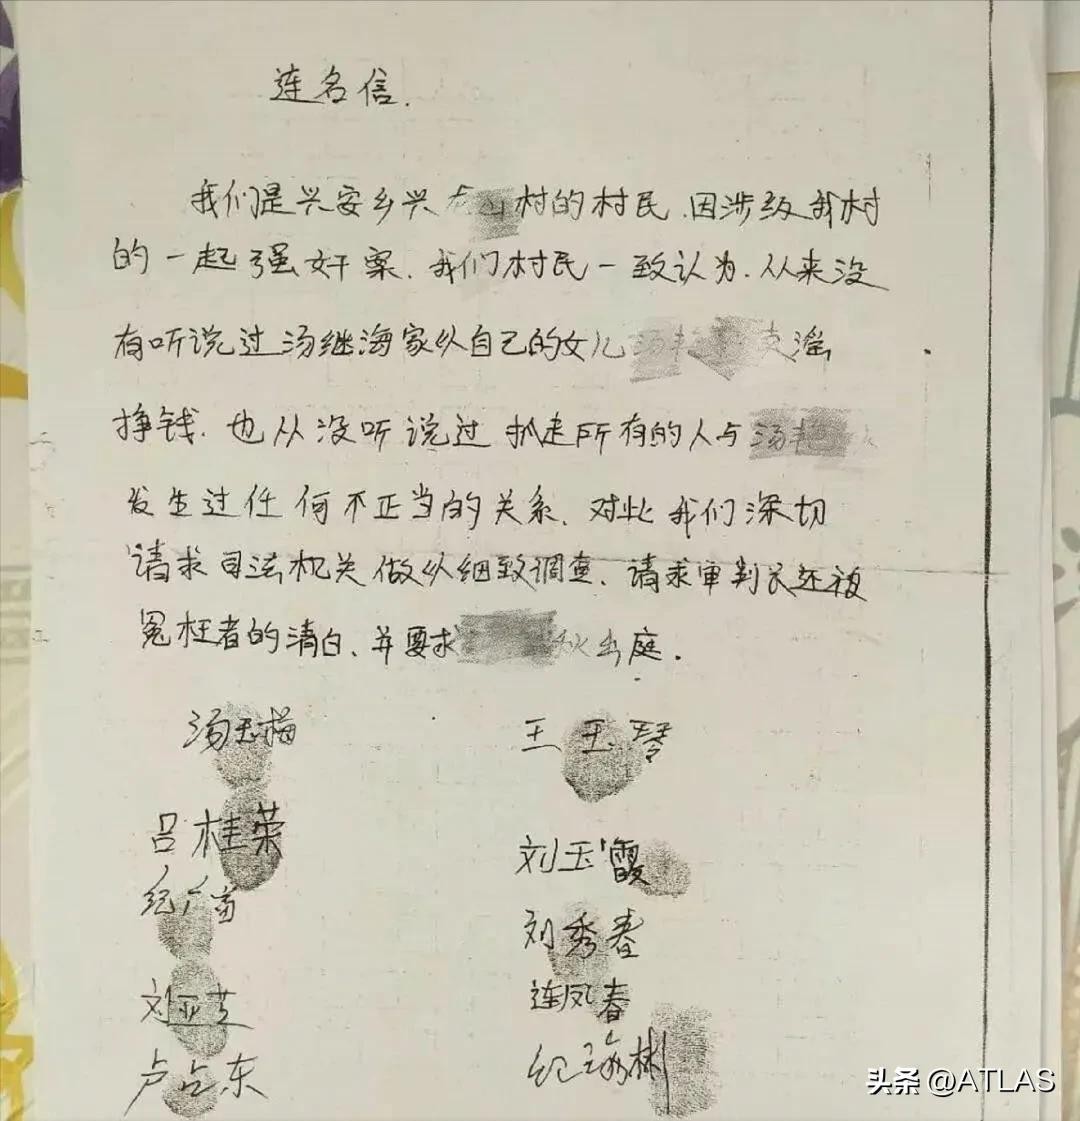 连名信.
我们是兴安乡兴龙山村的村民.因涉级我村
的一起强奸案.我们村民一致认为.从来没
有听说过汤继海家纵自己的女儿卖淫
挣钱.也从没听说过抓走所有的人与
发生过任何不正当的关系.对此我们深切
请求司法机关做纵细致调查.请求审判长还被
冤枉者的清白.并要求秋出庭.
汤玉梅 王玉琴
吕桂荣 刘玉霞
纪广富 刘秀春
刘亚芝 连凤春
卢占东 纪海彬
头条 @ATLAS